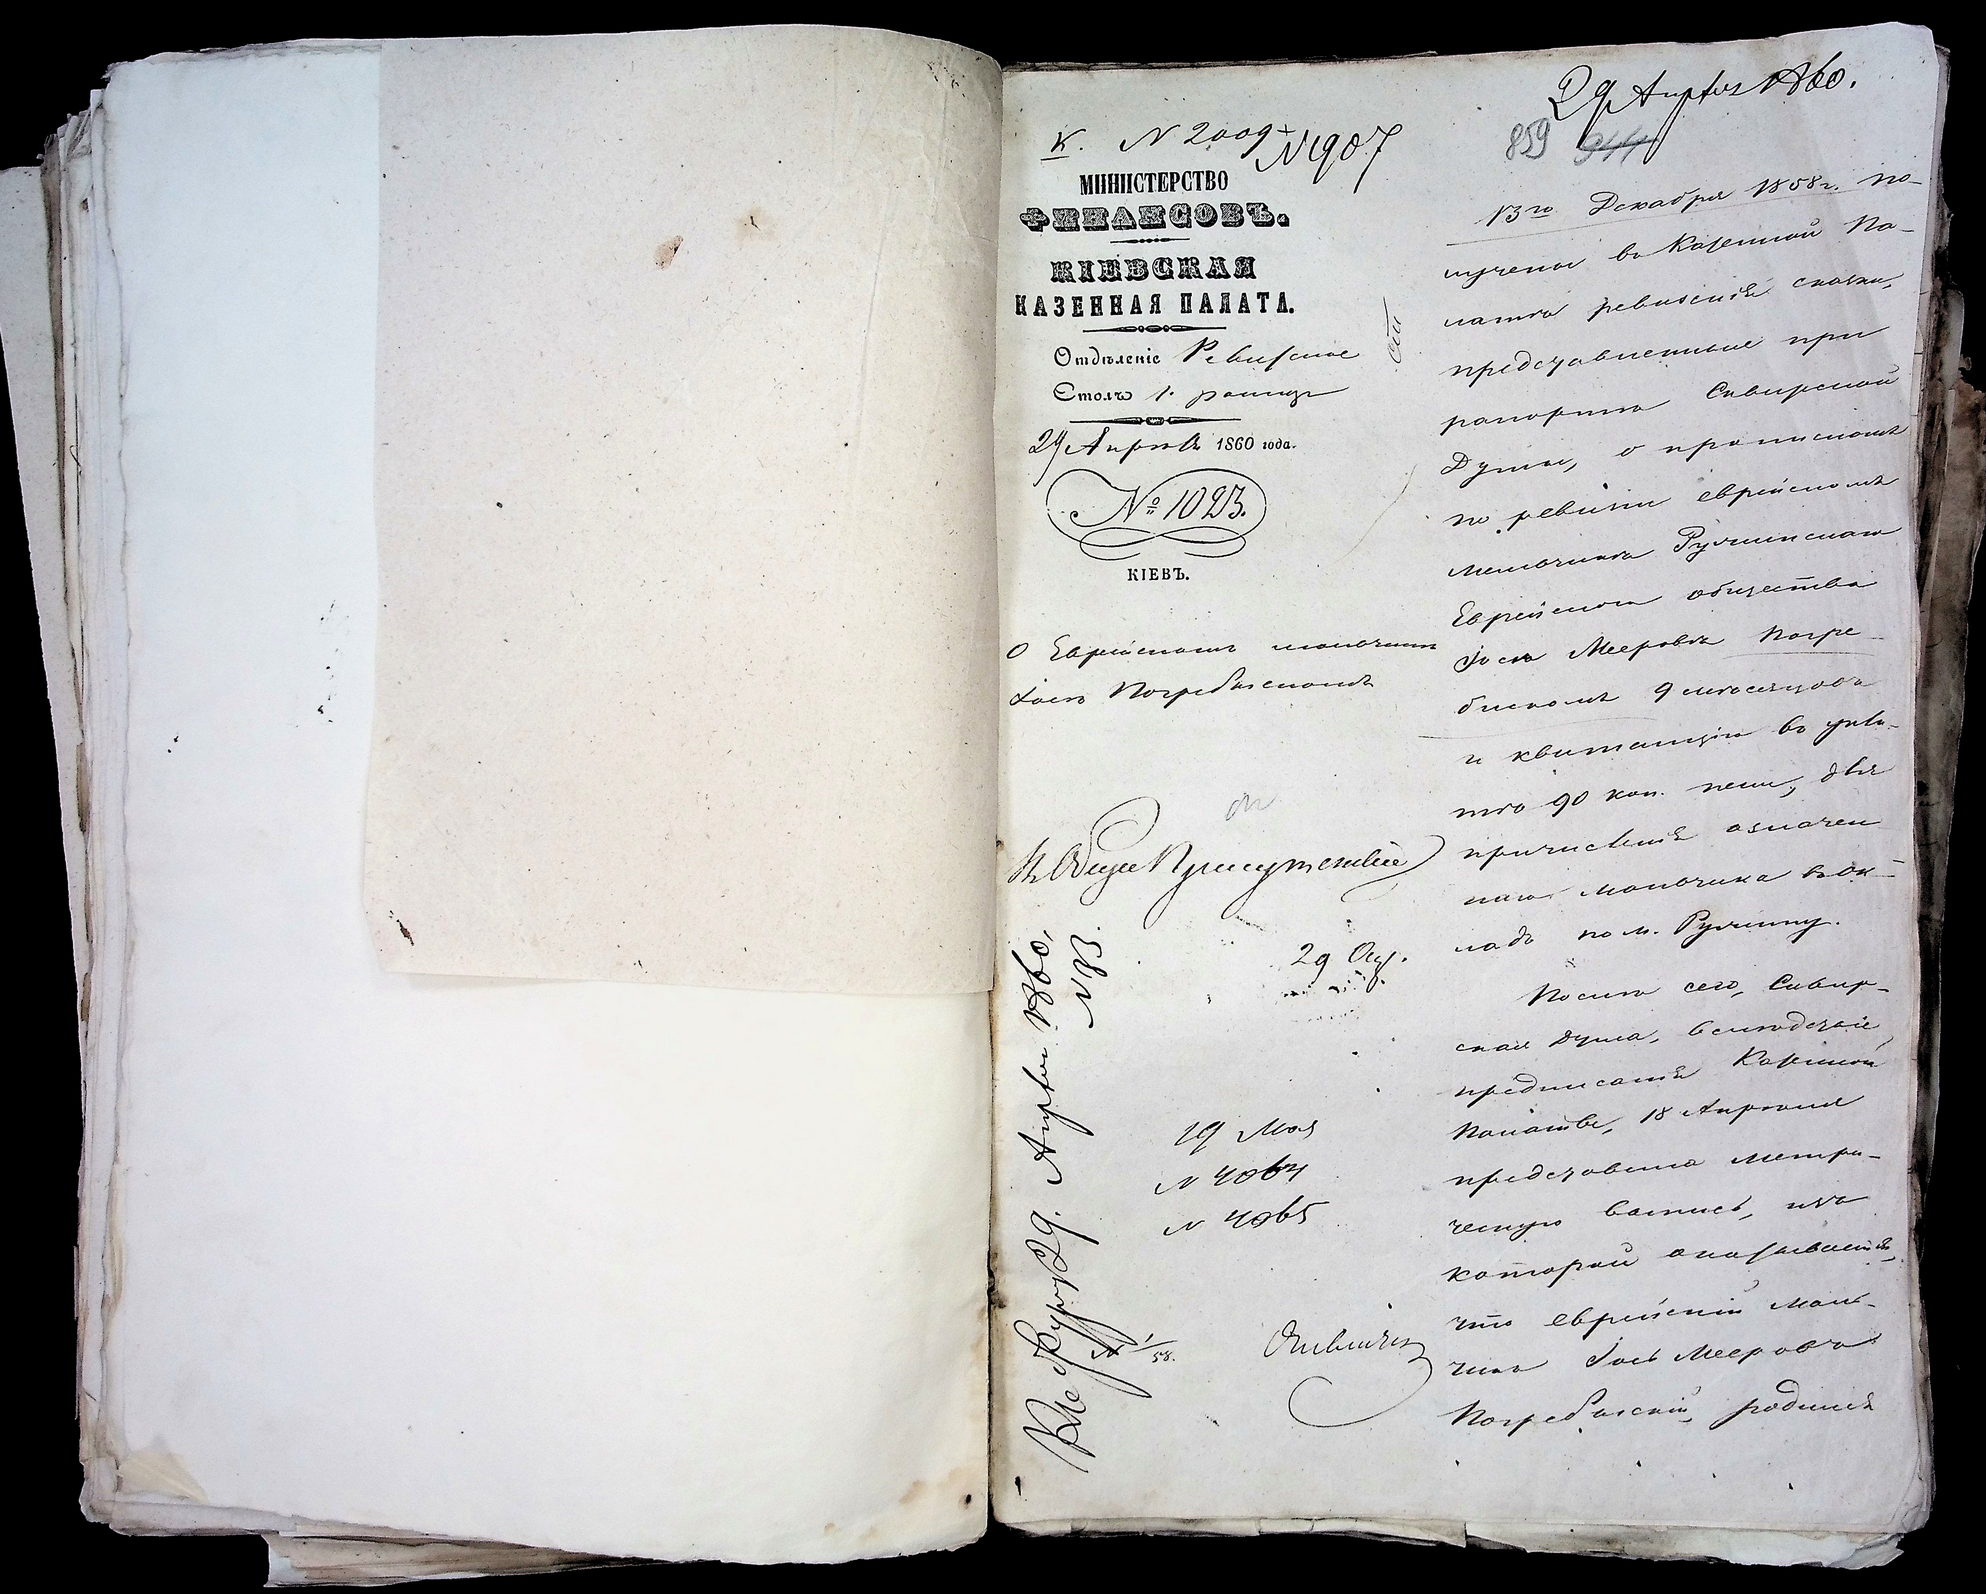 29 Апреля 1860.
К. N 2009 N 1907
859 944
МИНИСТЕРСТВО
ФИНАНСОВЪ.
КІЕВСКАЯ
КАЗЕННАЯ ПАЛАТА.
Отдѣленіе Ревизское
Столъ 1.
29 Апрѣля 1860 года.
№ 1023.
КІЕВЪ.
О Еврейскомъ мальчикѣ
Іосѣ Погребискомъ
Въ Общее Присутствіе
29 Апр.
19 Мая
N 4064
N 4065
29. Апрѣля 1860,
N 83.
N 1/58.
13го Декабря 1858 г. по-
лучены въ Казенной Па-
латѣ ревизскія сказки,
представленныя при
рапортѣ Сквирской
Думы, о прописномъ
по ревизіи еврейскомъ
мальчикѣ Ружинскаго
Еврейскаго общества
Іосѣ Мееровѣ Погре-
бискомъ 9 мѣсяцовъ
и квитанція въ упла-
тѣ 90 коп. пени, для
причисленія означен-
наго мальчика въ ок-
ладъ по м. Ружину.
Послѣ сего, Сквир-
ская Дума, вслѣдствіе
предписанія Казенной
Палаты, 18 Апрѣля
представила метри-
ческую выпись, изъ
которой оказывается,
что еврейскій маль-
чикъ Іось Мееровъ
Погребискій, родился